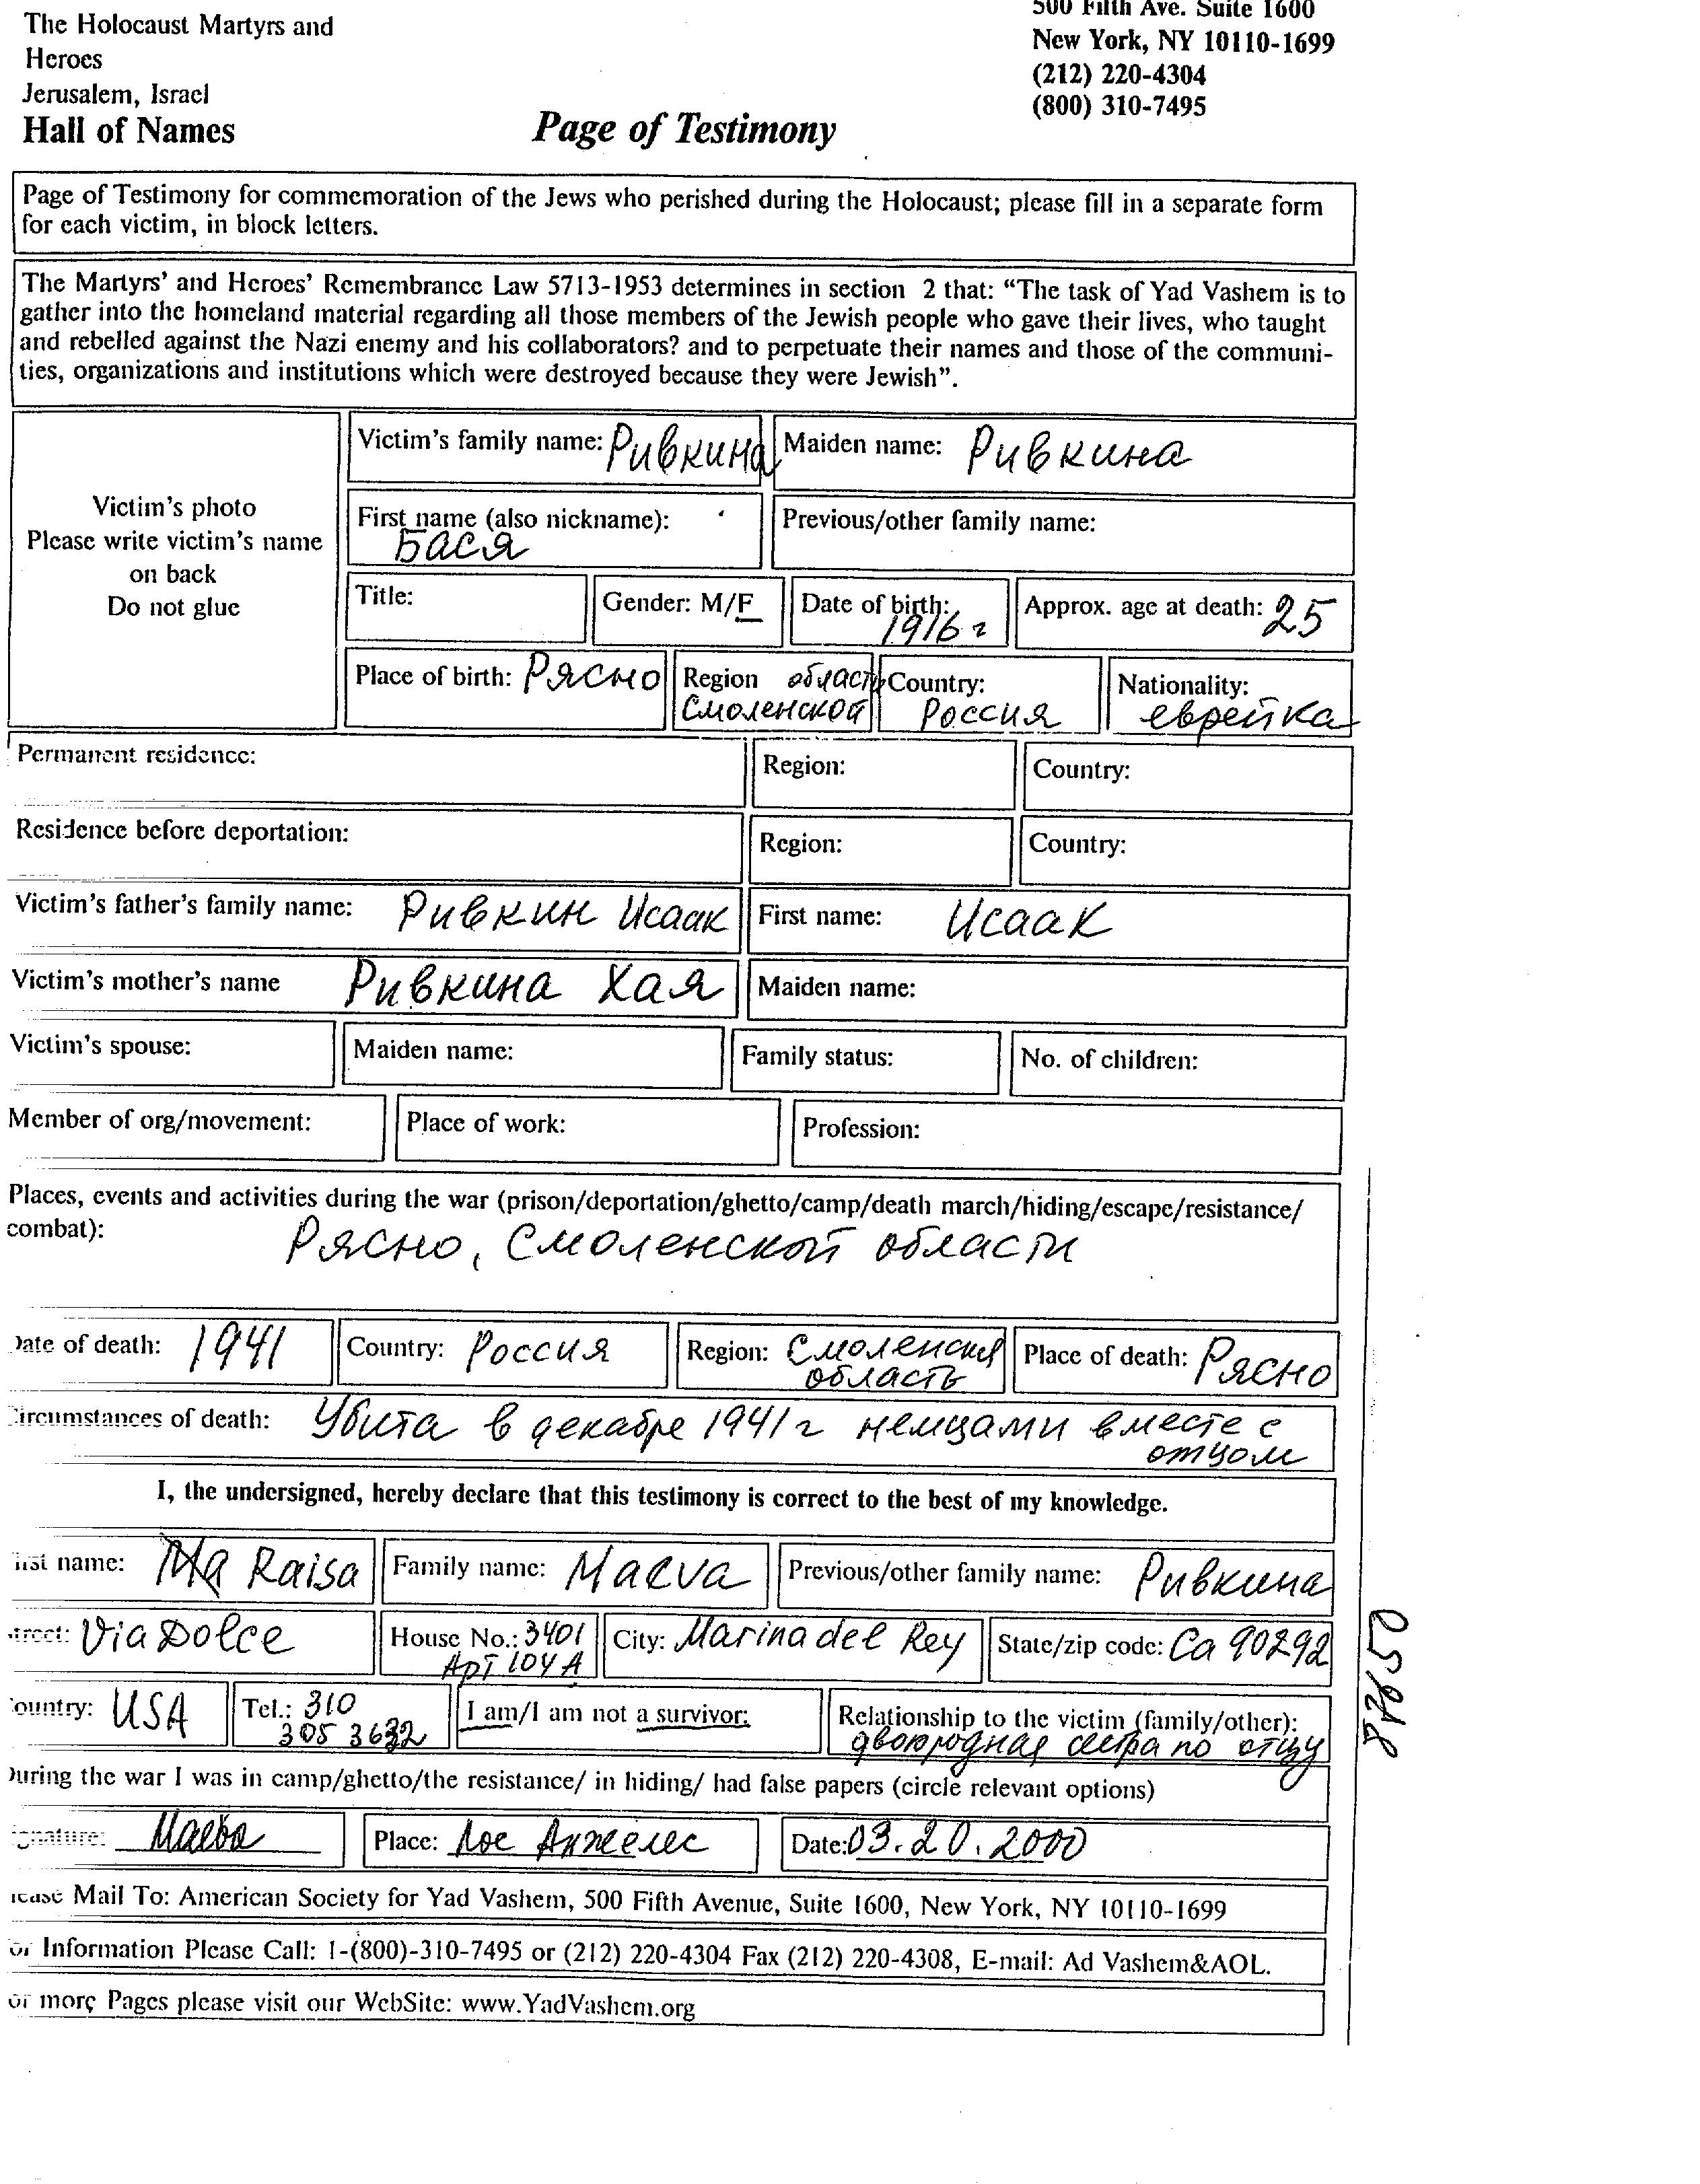 The Holocaust Martyrs and
Heroes
Jerusalem, Israel
Hall of Names
Page of Testimony
500 Fifth Ave. Suite 1600
New York, NY 10110-1699
(212) 220-4304
(800) 310-7495
Page of Testimony for commemoration of the Jews who perished during the Holocaust; please fill in a separate form
for each victim, in block letters.
The Martyrs' and Heroes' Remembrance Law 5713-1953 determines in section 2 that: "The task of Yad Vashem is to
gather into the homeland material regarding all those members of the Jewish people who gave their lives, who taught
and rebelled against the Nazi enemy and his collaborators? and to perpetuate their names and those of the communi-
ties, organizations and institutions which were destroyed because they were Jewish".
Victim's photo
Please write victim's name
on back
Do not glue
Victim's family name: Ривкина
Maiden name: Ривкина
First name (also nickname):
Бася
Previous/other family name:
Title:
Gender: M/F
Date of birth:
1916 г
Approx. age at death: 25
Place of birth: Рясно
Region область
Смоленской
Country:
Россия
Nationality:
еврейка
Permanent residence:
Region:
Country:
Residence before deportation:
Region:
Country:
Victim's father's family name: Ривкин Исаак
First name: Исаак
Victim's mother's name Ривкина Хая
Maiden name:
Victim's spouse:
Maiden name:
Family status:
No. of children:
Member of org/movement:
Place of work:
Profession:
Places, events and activities during the war (prison/deportation/ghetto/camp/death march/hiding/escape/resistance/
combat):
Рясно, Смоленской области
Date of death: 1941
Country: Россия
Region: Смоленская
область
Place of death: Рясно
Circumstances of death: Убита в декабре 1941 г немцами вместе с
отцом
I, the undersigned, hereby declare that this testimony is correct to the best of my knowledge.
First name: Raisa
Family name: Maeva
Previous/other family name: Ривкина
Street: Via Dolce
House No.: 3401
Apt 104 A
City: Marina del Rey
State/zip code: Ca 90292
Country: USA
Tel.: 310
305 3632
I am/I am not a survivor:
Relationship to the victim (family/other):
двоюродная сестра по отцу
During the war I was in camp/ghetto/the resistance/ in hiding/ had false papers (circle relevant options)
Signature: Маева
Place: Лос Анжелес
Date: 03.20.2000
Please Mail To: American Society for Yad Vashem, 500 Fifth Avenue, Suite 1600, New York, NY 10110-1699
For Information Please Call: 1-(800)-310-7495 or (212) 220-4304 Fax (212) 220-4308, E-mail: Ad Vashem&AOL.
For more Pages please visit our WebSite: www.YadVashem.org